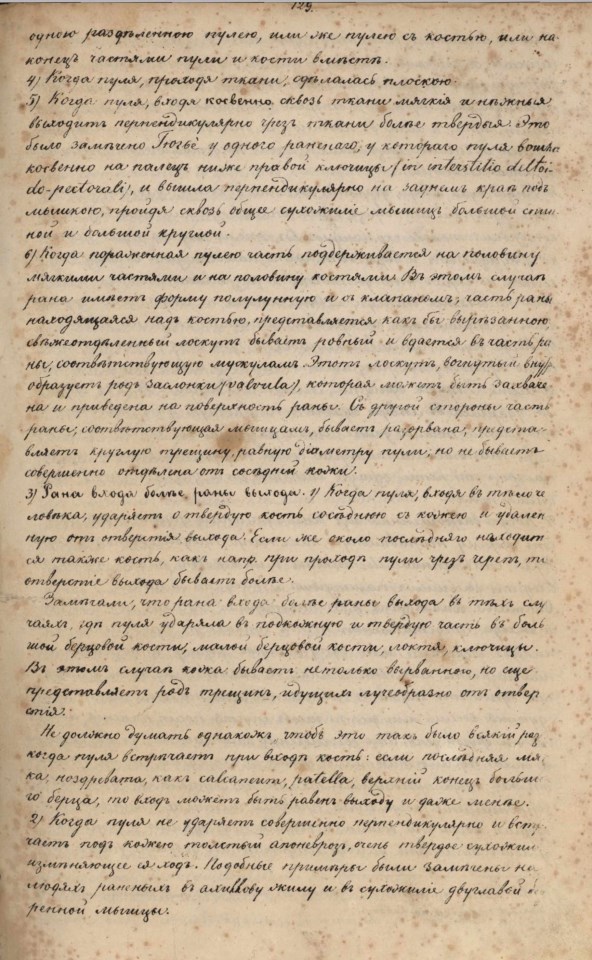 129.
одною раздѣленною пулею, или же пулею съ костью, или на-
конецъ частями пули и кости вмѣстѣ.
4) Когда пуля, проходя ткани, сдѣлалась плоскою.
5) Когда пуля, входя косвенно сквозь ткани мягкія и нѣжныя
выходитъ перпендикулярно чрезъ ткани болѣе твердыя. Это
было замѣчено Гютье у одного раненаго, у котораго пуля вошла
косвенно на палецъ ниже правой ключицы (in interstitio deltoi-
do-pectorali), и вышла перпендикулярно на заднемъ краѣ подъ
мышкою, пройдя сквозь общее сухожиліе мышицъ большой спин-
ной и большой круглой.
6) Когда пораженная пулею часть поддерживается на половину
мягкими частями и на половину костями. Въ этомъ случаѣ
рана имѣетъ форму полулунную и съ клапаномъ; часть раны
находящаяся надъ костью, представляется какъ бы вырѣзанною
свѣжеотдѣленный лоскутъ бываетъ ровный и вдается въ часть ра
ны, соотвѣтствующую мускуламъ. Этотъ лоскутъ, вогнутый внутрь
образуетъ родъ заслонки (valvula), которая можетъ быть захваче-
на и приведена на поверхность раны. Съ другой стороны часть
раны, соотвѣтствующая мышицамъ, бываетъ разорвана, предста-
вляетъ круглую трещину, равную діаметру пули, но не бываетъ
совершенно отдѣлена отъ сосѣдней кожи.
3) Рана входа болѣе раны выхода. 1) Когда пуля, входя въ тѣло че
ловѣка, ударяетъ о твердую кость сосѣднюю съ кожею и удален
ную отъ отверстія выхода. Если же около послѣдняго находит
ся также кость, какъ напр. при проходѣ пули чрезъ черепъ, то
отверстіе выхода бываетъ болѣе.
Замѣчали, что рана входа болѣе раны выхода въ тѣхъ слу
чаяхъ, гдѣ пуля ударяла въ подкожную и твердую часть въ боль
шой берцовой кости, малой берцовой кости, локтя, ключицы.
Въ этомъ случаѣ кожа бываетъ не только вырванною, но еще
представляетъ родъ трещинъ, идущихъ лучеобразно отъ отвер
стія.
Не должно думать однакожъ, чтобъ это такъ было всякій раз
когда пуля встрѣчаетъ при входѣ кость: если послѣдняя мяг
ка, ноздревата, какъ calcaneum, patella, верхній конецъ больша
го берца, то входъ можетъ быть равенъ выходу и даже менѣе.
2) Когда пуля не ударяетъ совершенно перпендикулярно и встрѣ
чаетъ подъ кожею толстый апоневрозъ, очень твердое сухожиліе
измѣняющее ея ходъ. Подобные примѣры были замѣчены на
людяхъ раненыхъ въ ахиллову жилу и въ сухожиліе двуглавой бе
дренной мышицы.